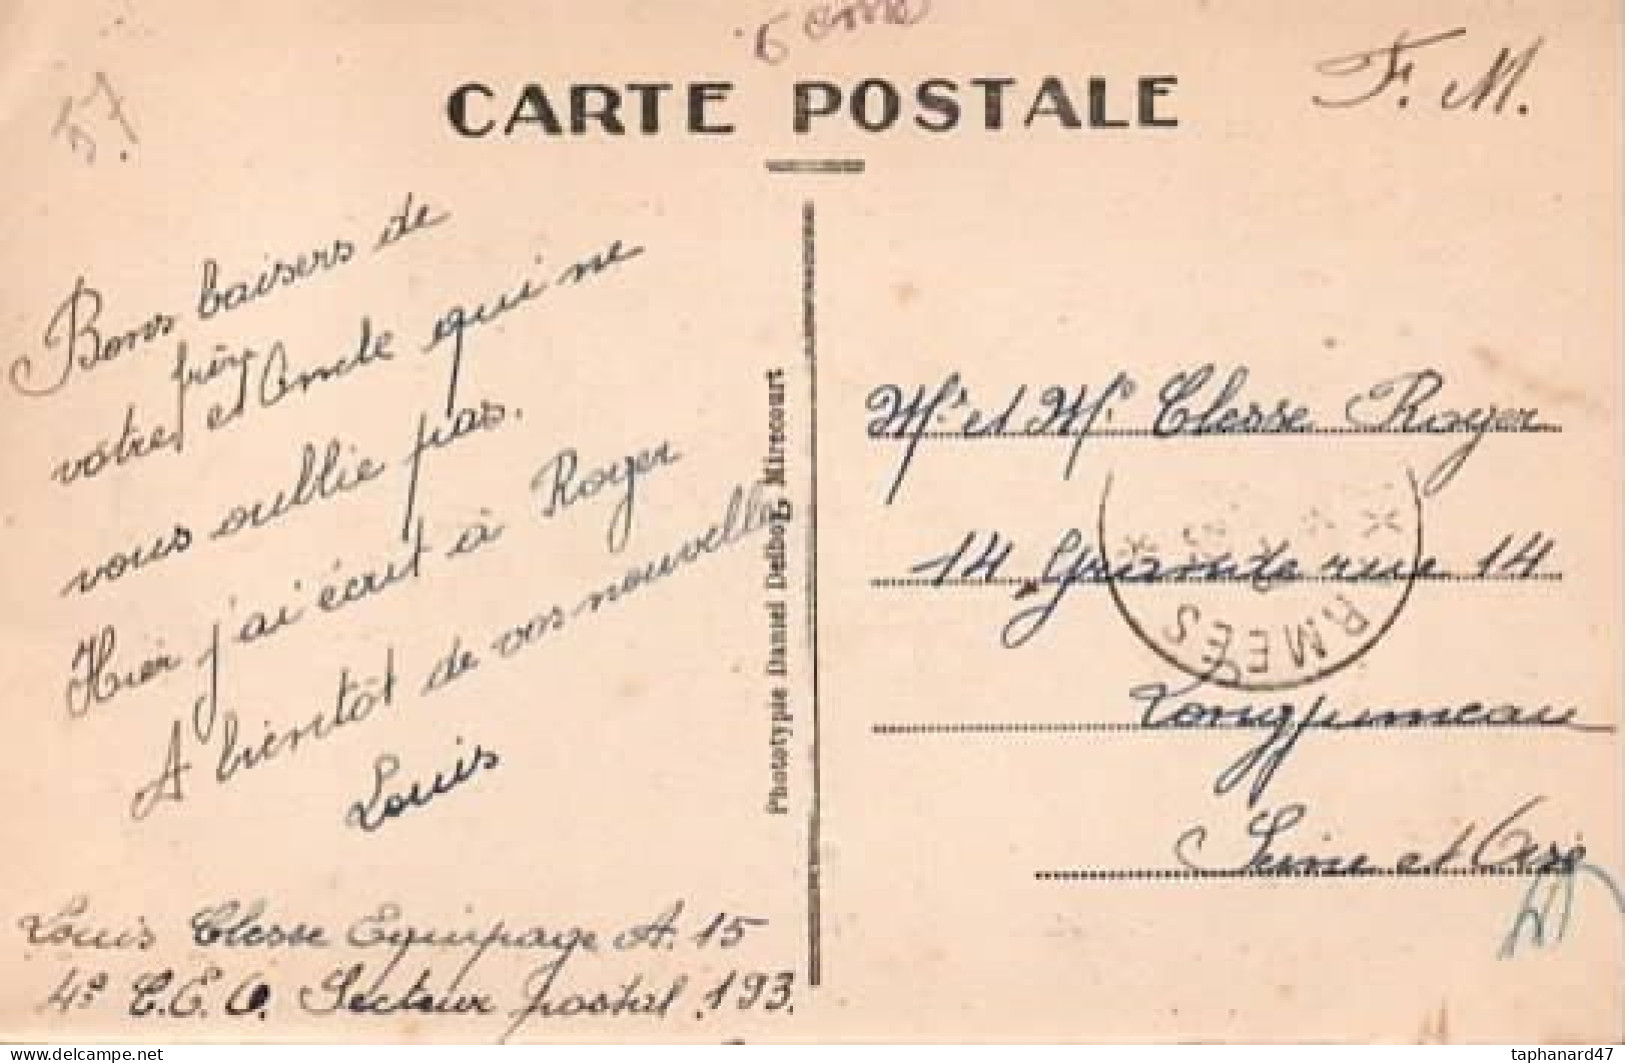 57.
CARTE POSTALE
F. M.
Bons baisers de
votre frère et Oncle qui ne
vous oublie pas.
Hier j'ai écrit à Royer
A bientôt de vos nouvelles
Louis
Louis Clesse Equipage A. 15
4e C.E.O. Secteur postal 193.
Phototypie Daniel Delboy, Mirecourt
Mr et Me Clesse Royer
14 Grande rue 14
Longjumeau
Seine et Oise
ARMÉES
taphanard47